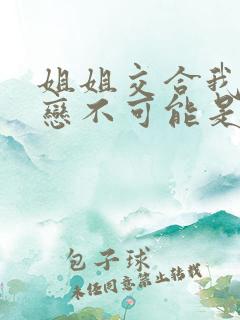 姐姐交合我
戀不可能是
包子球
未经同意禁止转载